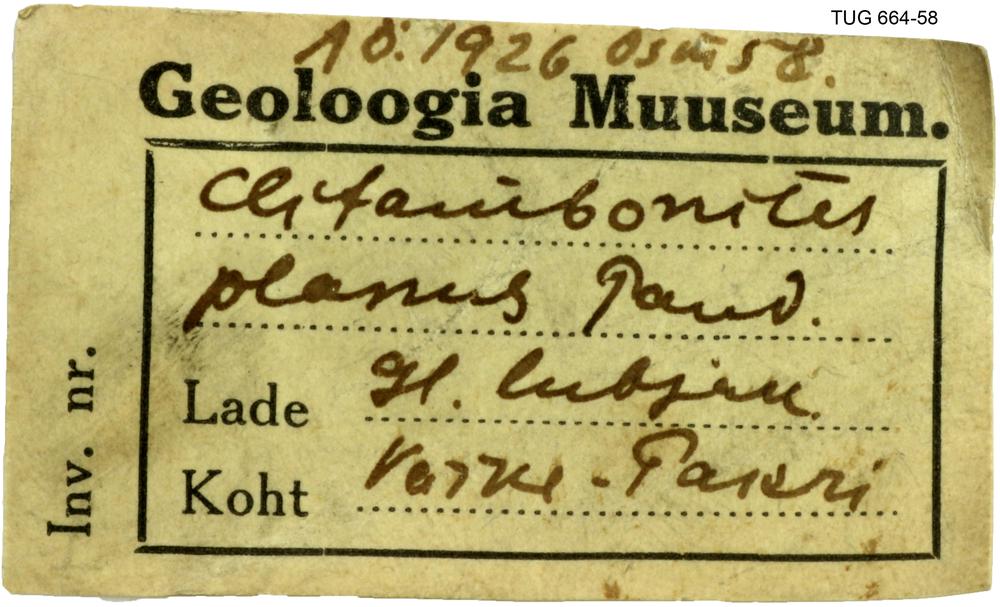 TUG 664-58
AÖ. 1926 Osm 58.
Geoloogia Muuseum.
Clitambonites
planus Pand.
Lade Gl. lubjak.
Koht Väike-Pakri
Inv. nr.